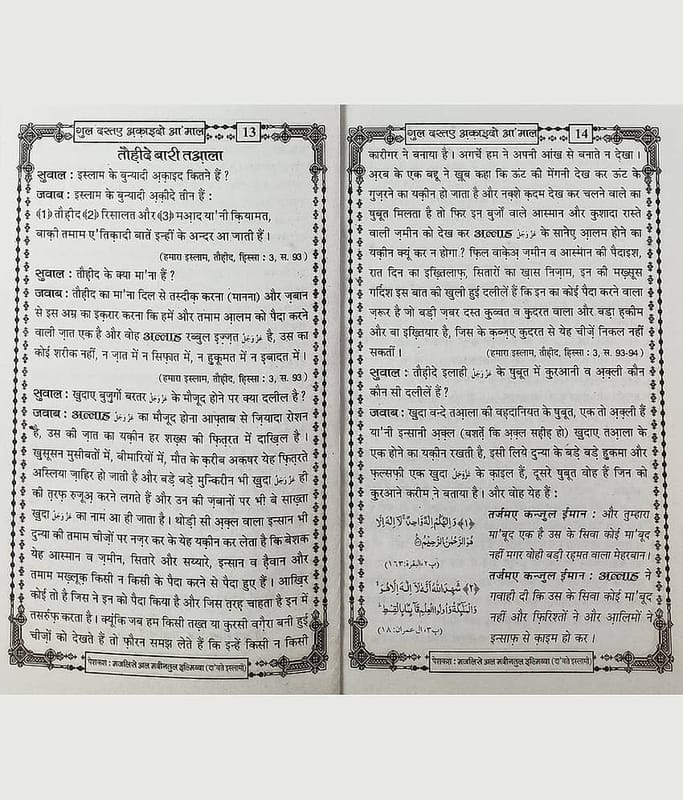 गुल दस्तए अक़ाइदो आ'माल
13
तौहीदे बारी तआ़ला
सुवाल : इस्लाम के बुन्यादी अ़क़ाइद कितने हैं ?
जवाब : इस्लाम के बुन्यादी अ़क़ीदे तीन हैं :
﴾1﴿ तौहीद ﴾2﴿ रिसालत और ﴾3﴿ मआ़द या'नी क़ियामत,
बाक़ी तमाम ए'तिक़ादी बातें इन्हीं के अन्दर आ जाती हैं ।
(हमारा इस्लाम, तौहीद, हिस्सा : 3, स. 93)
सुवाल : तौहीद के क्या मा'ना हैं ?
जवाब : तौहीद का मा'ना दिल से तस्दीक़ करना (मानना) और ज़बान
से इस अम्र का इक़रार करना कि हमें और तमाम आ़लम को पैदा करने
वाली ज़ात एक है और वोह अल्लाह रब्बुल इज़्ज़त عَزَّوَجَلَّ है, उस का
कोई शरीक नहीं, न ज़ात में न सिफ़ात में, न हुकूमत में न इबादत में ।
(हमारा इस्लाम, तौहीद, हिस्सा : 3, स. 93)
सुवाल : खुदाए बुज़ुर्गो बरतर عَزَّوَجَلَّ के मौजूद होने पर क्या दलील है ?
जवाब : अल्लाह عَزَّوَجَلَّ का मौजूद होना आफ़्ताब से ज़ियादा रोशन
है, उस की ज़ात का यक़ीन हर शख़्स की फ़ित़रत में दाख़िल है ।
खुसूसन मुसीबतों में, बीमारियों में, मौत के क़रीब अक्सर येह फ़ित़रते
अस्लिया ज़ाहिर हो जाती है और बड़े बड़े मुन्किरीन भी खुदा عَزَّوَجَلَّ ही
की त़रफ़ रुजूअ़ करने लगते हैं और उन की ज़बानों पर भी बे साख़्ता
खुदा عَزَّوَجَلَّ का नाम आ ही जाता है । थोड़ी सी अ़क़्ल वाला इन्सान भी
दुन्या की तमाम चीज़ों पर नज़र कर के येह यक़ीन कर लेता है कि बेशक
येह आस्मान व ज़मीन, सितारे और सय्यारे, इन्सान व हैवान और
तमाम मख़्लूक़ किसी न किसी के पैदा करने से पैदा हुए हैं । आख़िर
कोई तो है जिस ने इन को पैदा किया है और जिस त़रह़ चाहता है इन में
तसर्रुफ़ करता है । क्यूंकि जब हम किसी तख़्त या कुरसी वग़ैरा बनी हुई
चीज़ों को देखते हैं तो फ़ौरन समझ लेते हैं कि इन्हें किसी न किसी
पेशकश : मजलिसे अल मदीनतुल इल्मिय्या (दा'वते इस्लामी)
गुल दस्तए अक़ाइदो आ'माल
14
कारीगर ने बनाया है । अगर्चे हम ने अपनी आंख से बनाते न देखा ।
अ़रब के एक बद्दू ने ख़ूब कहा कि ऊंट की मेंगनी देख कर ऊंट के
गुज़रने का यक़ीन हो जाता है और नक़्शे क़दम देख कर चलने वाले का
सुबूत मिलता है तो फिर इन बुर्जों वाले आस्मान और कुशादा रास्ते
वाली ज़मीन को देख कर अल्लाह عَزَّوَجَلَّ के सानेए आ़लम होने का
यक़ीन क्यूं कर न होगा ? फ़िल वाक़ेअ़ ज़मीन व आस्मान की पैदाइश,
रात दिन का इख़्तिलाफ़, सितारों का ख़ास निज़ाम, इन की मख़्सूस
गर्दिश इस बात की खुली हुई दलीलें हैं कि इन का कोई पैदा करने वाला
ज़रूर है जो बड़ी ज़बर दस्त कुव्वत व कुदरत वाला और बड़ा हकीम
और बा इख़्तियार है, जिस के क़ब्ज़ए कुदरत से येह चीज़ें निकल नहीं
सकतीं । (हमारा इस्लाम, तौहीद, हिस्सा : 3, स. 93-94)
सुवाल : तौहीदे इलाही عَزَّوَجَلَّ के सुबूत में कुरआनी व अ़क़्ली कौन
कौन सी दलीलें हैं ?
जवाब : खुदा वन्दे तआ़ला की वह़दानियत के सुबूत, एक तो अ़क़्ली हैं
या'नी इन्सानी अ़क़्ल (बशर्ते कि अ़क़्ल सह़ीह़ हो) खुदाए तआ़ला के
एक होने का यक़ीन रखती है, इसी लिये दुन्या के बड़े बड़े हुकमा और
फ़ल्सफ़ी एक खुदा عَزَّوَجَلَّ के क़ाइल हैं, दूसरे सुबूत वोह हैं जिन को
कुरआने करीम ने बताया है । और वोह येह हैं :
﴿۱﴾ وَاِلٰهُكُمْ اِلٰهٌ وَّاحِدٌ ۚ لَاۤ اِلٰهَ اِلَّا
هُوَ الرَّحْمٰنُ الرَّحِیْمُ
(پ۲، البقرة: ۱۶۳)
तर्जमए कन्ज़ुल ईमान : और तुम्हारा
मा'बूद एक है उस के सिवा कोई मा'बूद
नहीं मगर वोही बड़ी रहमत वाला मेहरबान ।
﴿۲﴾ شَهِدَ اللّٰهُ اَنَّهٗ لَاۤ اِلٰهَ اِلَّا هُوَ ۙ
وَالْمَلٰٓئِكَةُ وَاُولُوا الْعِلْمِ قَآئِمًۢا بِالْقِسْطِ
(پ۳، ال عمران: ۱۸)
तर्जमए कन्ज़ुल ईमान : अल्लाह ने
गवाही दी कि उस के सिवा कोई मा'बूद
नहीं और फ़िरिश्तों ने और आ़लिमों ने
इन्साफ़ से क़ाइम हो कर ।
पेशकश : मजलिसे अल मदीनतुल इल्मिय्या (दा'वते इस्लामी)